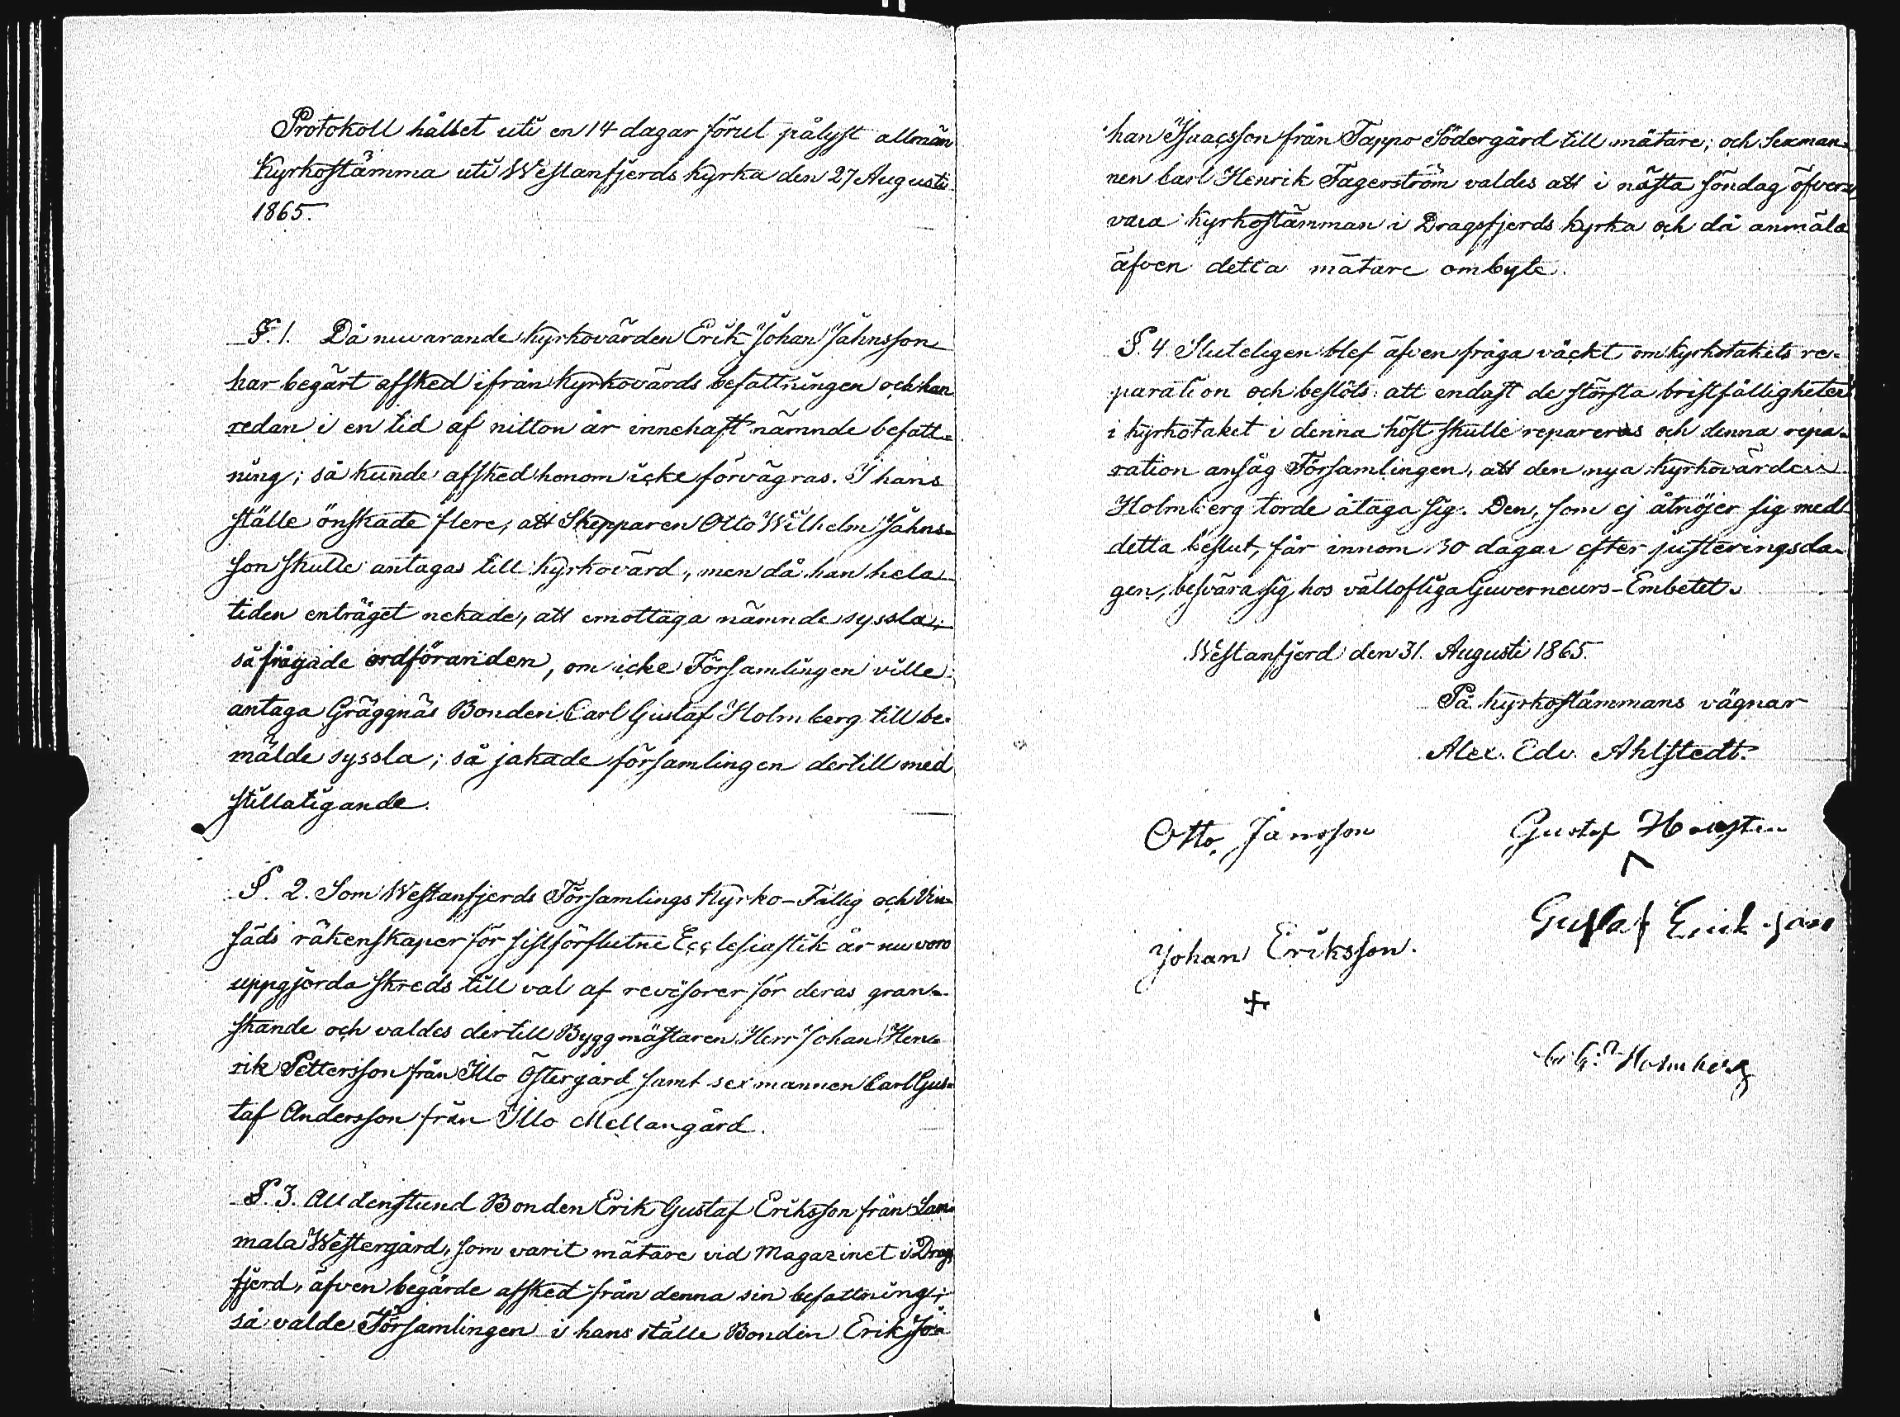 Protokoll hållet uti en 14 dagar förut pålyst allmän
Kyrkostämma uti Westanfjerds Kyrka den 27 Augusti
1865.
§. 1. Då nuvarande Kyrkovärden Erik Johan Jahnsson
har begärt afsked ifrån Kyrkovärds befattningen och han
redan i en tid af nitton år innehaft nämnde befatt-
ning; så kunde afsked honom icke förvägras. I hans
ställe önskade flere, att Skepparen Otto Wilhelm Jahns-
son skulle antagas till Kyrkovärd, men då han hela
tiden enträget nekade, att emottaga nämnde syssla;
så frågade ordföranden, om icke Församlingen ville
antaga Gräggnäs Bonden Carl Gustaf Holmberg till be-
mälde syssla; så jakade församlingen dertill med
stillatigande.
§. 2. Som Westanfjerds Församlings Kyrko-Fattig och Vin-
säds räkenskaper för sistförflutne Ecclesiastik år nu voro
uppgjorda skreds till val af revisorer för deras gran-
skande och valdes dertill Byggmästaren Herr Johan Hen-
rik Pettersson från Illo Östergård samt sexmannen Carl Gus-
taf Andersson från Illo Mellangård.
§. 3. Alldenstund Bonden Erik Gustaf Eriksson från Lam-
mala Westergård, som varit mätare vid Magazinet i Drags
fjerd, äfven begärde afsked från denna sin befattning;
så valde Församlingen i hans ställe Bonden Erik Jo-
han Isaacsson från Tappo Södergård till mätare; och Sexman-
nen Carl Henrik Fagerström valdes att i nästa söndag öfver-
vara Kyrkostämman i Dragsfjerds Kyrka och då anmäla
äfven detta mätare ombyte.
§. 4 Sluteligen blef äfven fråga väckt om Kyrkotakets re-
paration och beslöts: att endast de största bristfälligheter
i kyrkotaket i denna höst skulle repareras och denna repa-
ration ansåg Församlingen, att den nya Kyrkovärden
Holmberg torde åtaga sig. Den, som ej åtnöjer sig med
detta beslut, får innom 30 dagar efter justeringsda-
gen, besvära sig hos vällofliga Guverneurs-Embetet.
Westanfjerd den 31. Augusti 1865.
På Kyrkostämmans vägnar
Alex. Edv. Ahlstedt.
Otto Jansson
Gustaf
Johan Eriksson.
Gustaf Erickson
Holmberg